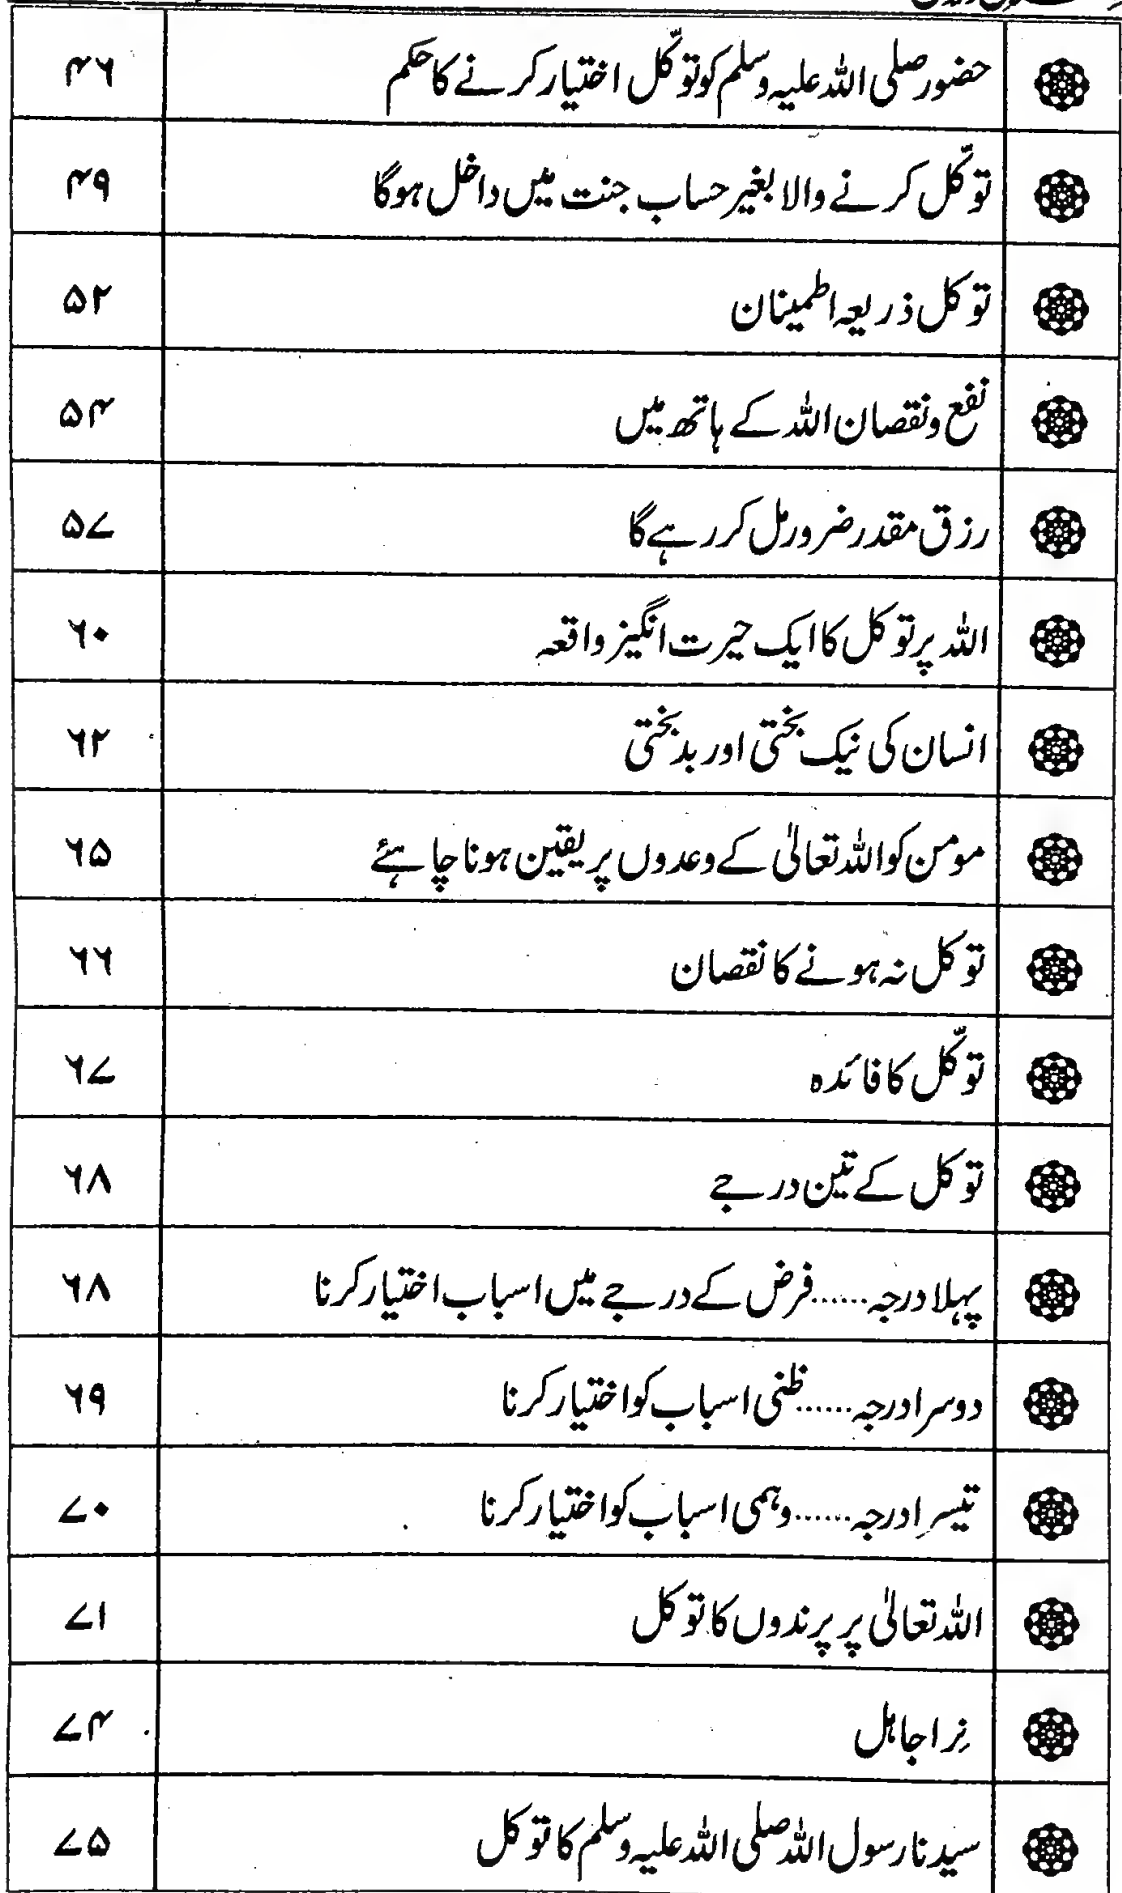 حضور صلی اللہ علیہ وسلم کو توکّل اختیار کرنے کا حکم ۴۶
توکّل کرنے والا بغیر حساب جنت میں داخل ہوگا ۴۹
توکل ذریعہ اطمینان ۵۲
نفع و نقصان اللہ کے ہاتھ میں ۵۴
رزق مقدر ضرور مل کر رہے گا ۵۷
اللہ پر توکل کا ایک حیرت انگیز واقعہ ۶۰
انسان کی نیک بختی اور بدبختی ۶۲
مومن کو اللہ تعالیٰ کے وعدوں پر یقین ہونا چاہئے ۶۵
توکل نہ ہونے کا نقصان ۶۶
توکّل کا فائدہ ۶۷
توکل کے تین درجے ۶۸
پہلا درجہ......فرض کے درجے میں اسباب اختیار کرنا ۶۸
دوسرا درجہ......ظنی اسباب کو اختیار کرنا ۶۹
تیسرا درجہ......وہمی اسباب کو اختیار کرنا ۷۰
اللہ تعالیٰ پر پرندوں کا توکل ۷۱
نِرا جاہل ۷۴
سیدنا رسول اللہ صلی اللہ علیہ وسلم کا توکل ۷۵